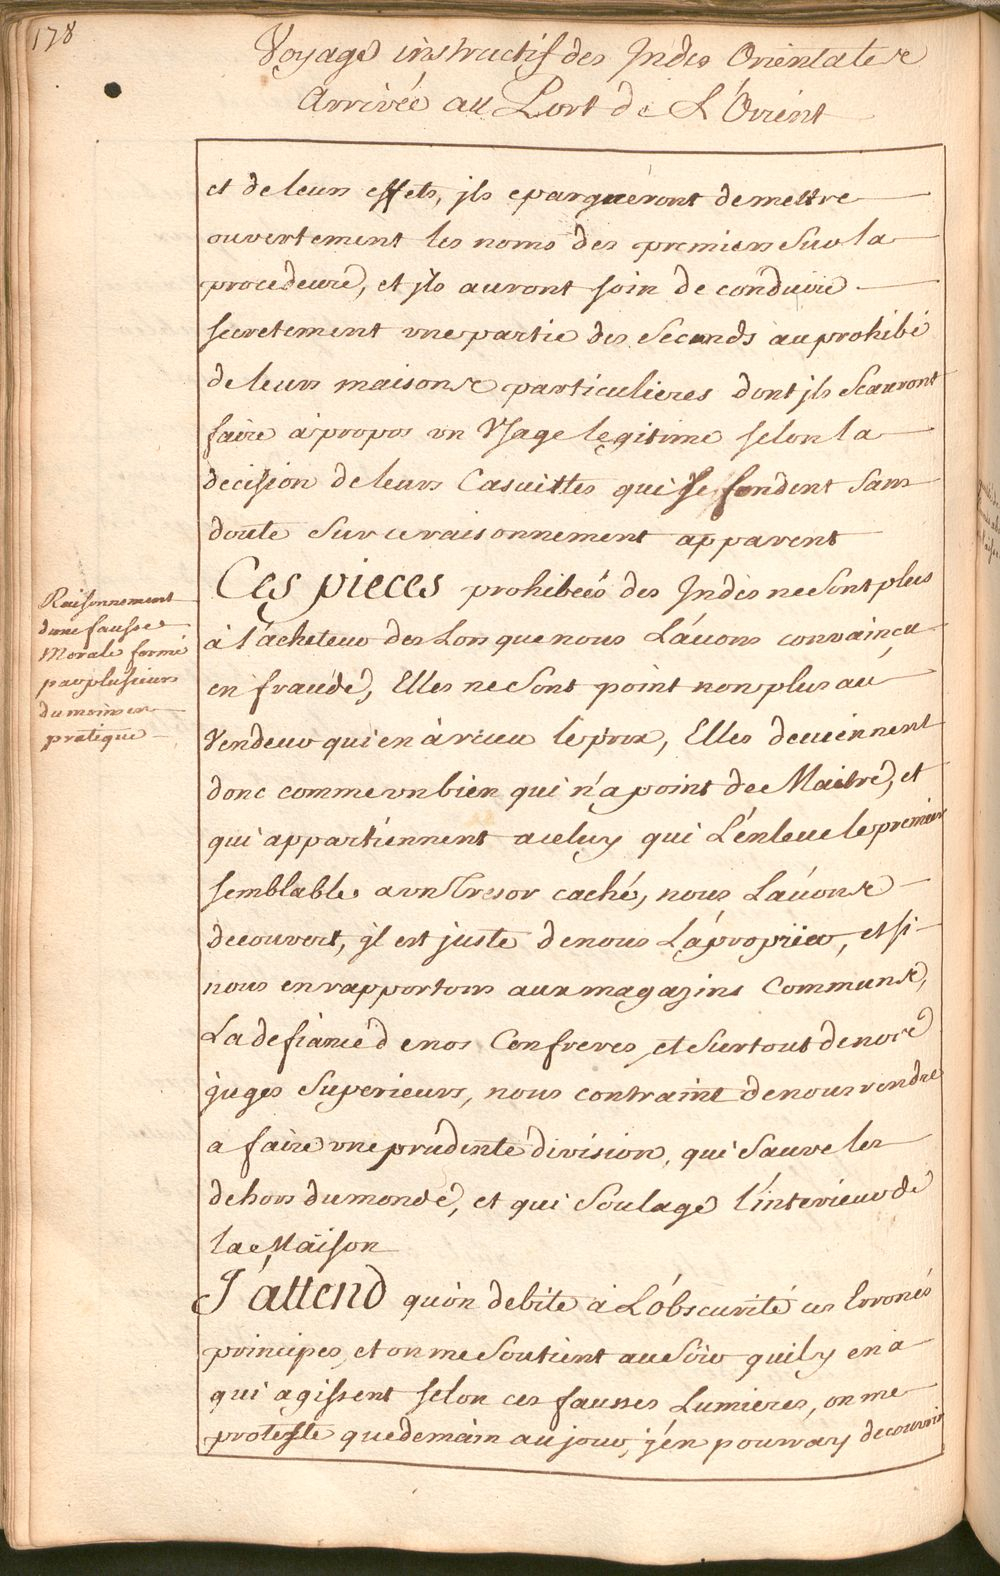 178
Voyage instructif des Indes Orientales
Arrivée au Port de L'Orient
et de leurs effets, jls epargneront de mettre
ouvertement les noms des premiers Sur la
procedeure, et jls auront soin de conduire
secretement une partie des Seconds au prohibé
de leurs maisons particulieres dont jls Scauront
faire à propos un Vsage legitime selon la
decision de leurs Casuittes qui Se fondent Sans
doute Sur ce raisonnement apparent
Ces pieces prohibeés des Indes ne Sont plus
à l'acheteur des Lors que nous L'avons convaincu
en fraude, Elles ne Sont point non plus au
Vendeur qui en à receu le prix, Elles deviennent
donc comme un bien qui n'a point de Maitre, et
qui appartiennent a celuy qui L'enleve le premier
semblable a un Tresor caché, nous L'avons
decouvert, jl est juste de nous L'aproprier, et si
nous en rapportons aux magazins Communs,
La defiance de nos Confreres et Surtout de nos
juges Superieurs, nous contraint de nous rendre
a faire une prudente division, qui Sauve les
dehors du monde, et qui Soulage l'interieur de
la Maison
J'attend qu'on debite à L'obscurité ces Erronés
principes, et on me Soutient au Soir qu'il y en a
qui agissent selon ces fausses Lumieres, on me
proteste que demain au jour, j'en pourray decouvrir
Raisonnement
d'une fausse
Morale formé
par plusieurs
du moins en
pratique